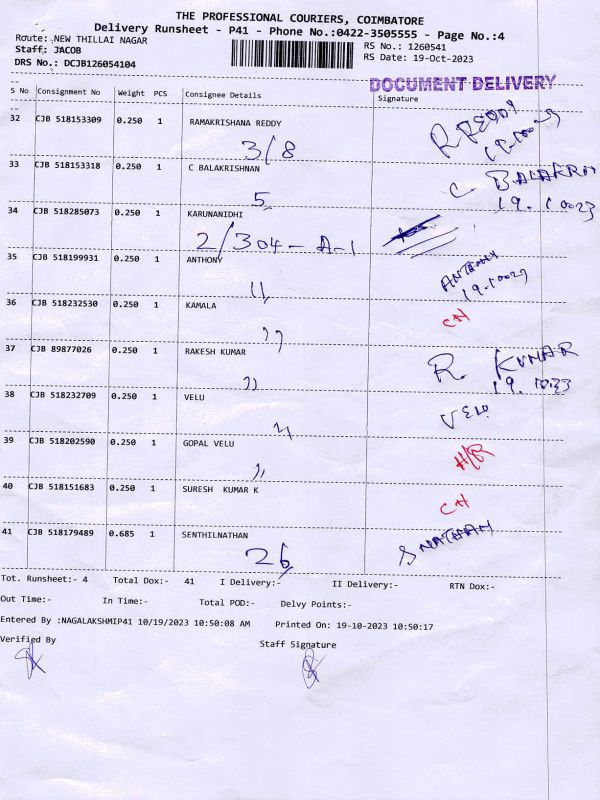 THE PROFESSIONAL COURIERS, COIMBATORE
Delivery Runsheet - P41 - Phone No.:0422-3505555 - Page No.:4
Route: NEW THILLAI NAGAR RS No.: 1260541
Staff: JACOB RS Date: 19-Oct-2023
DRS No.: DCJB126054104
DOCUMENT DELIVERY
S No Consignment No Weight PCS Consignee Details Signature
32 CJB 518153309 0.250 1 RAMAKRISHANA REDDY R REDDY
3/8
33 CJB 518153318 0.250 1 C BALAKRISHNAN C BALAKRI
5 19.10023
34 CJB 518285073 0.250 1 KARUNANIDHI
2/304-A-1
35 CJB 518199931 0.250 1 ANTHONY ANTHONY
11 19-10023
36 CJB 518232530 0.250 1 KAMALA CN
37 CJB 89877026 0.250 1 RAKESH KUMAR R. KUMAR
19.1023
38 CJB 518232709 0.250 1 VELU VELU
39 CJB 518202590 0.250 1 GOPAL VELU H/R
40 CJB 518151683 0.250 1 SURESH KUMAR K CN
41 CJB 518179489 0.685 1 SENTHILNATHAN S NATHAN
26
Tot. Runsheet:- 4 Total Dox:- 41 I Delivery:- II Delivery:- RTN Dox:-
Out Time:- In Time:- Total POD:- Delvy Points:-
Entered By :NAGALAKSHMIP41 10/19/2023 10:50:08 AM Printed On: 19-10-2023 10:50:17
Verified By Staff Signature